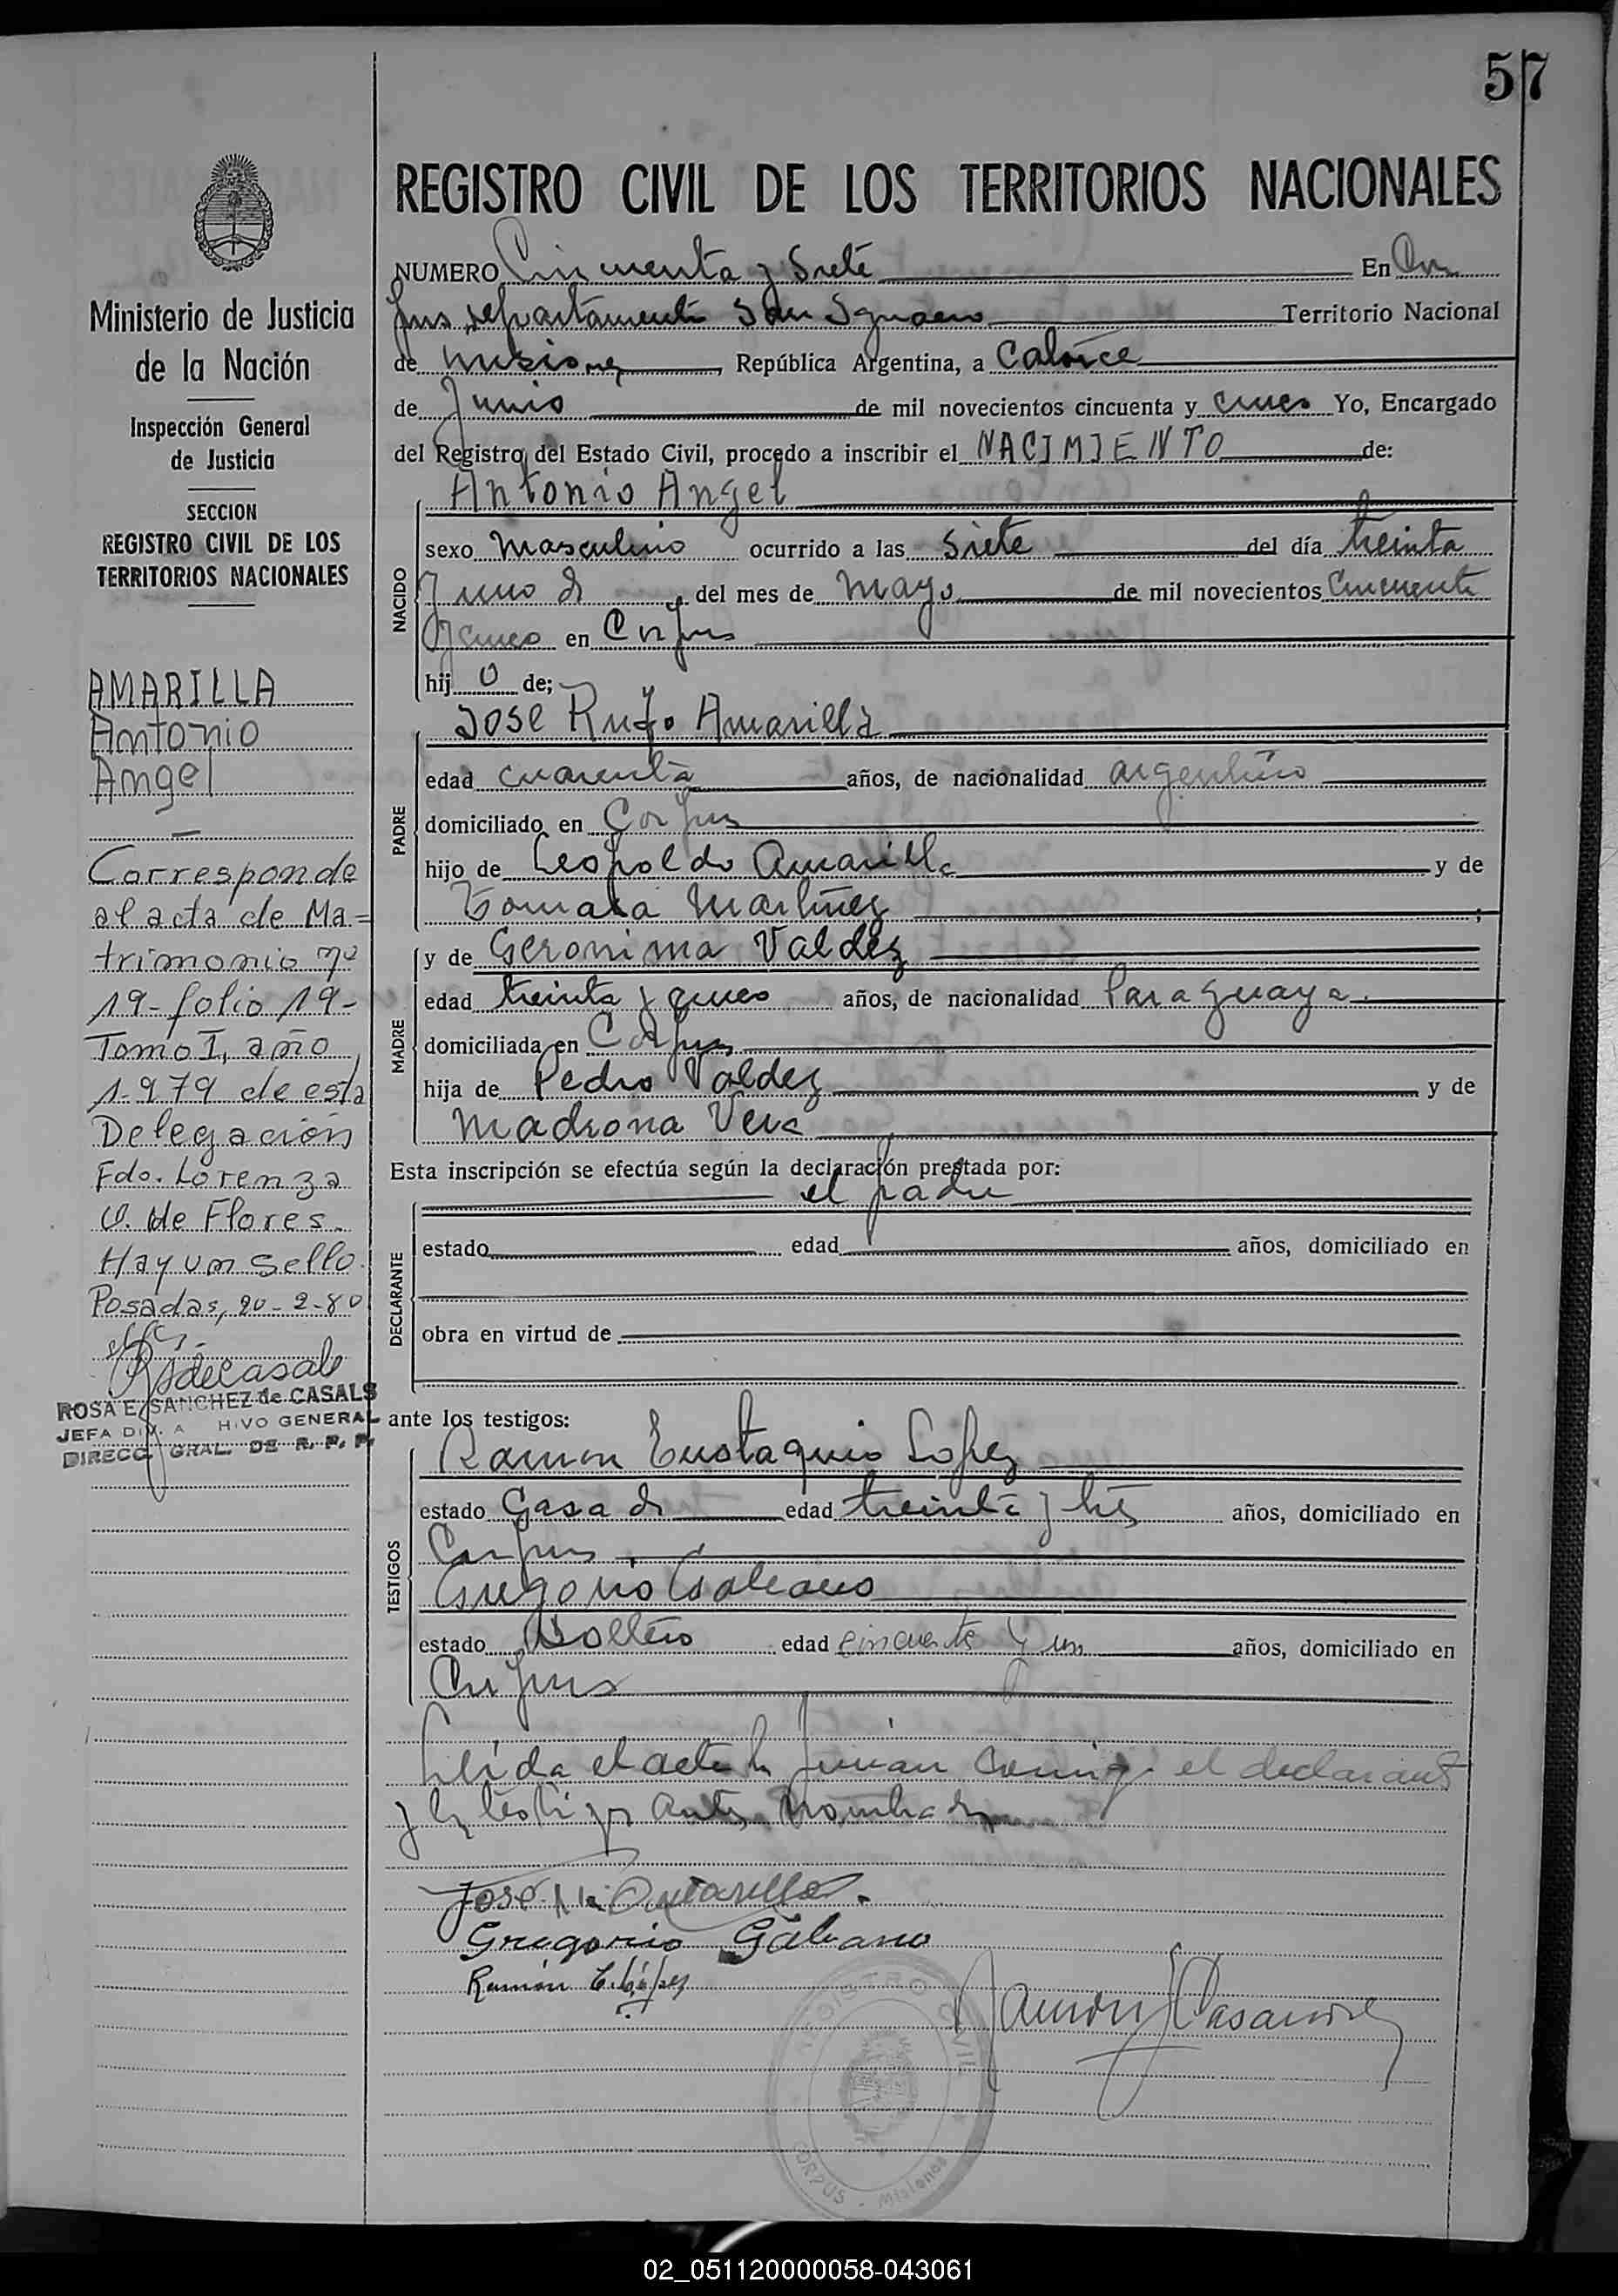 57
REGISTRO CIVIL DE LOS TERRITORIOS NACIONALES
Ministerio de Justicia
de la Nación
Inspección General
de Justicia
SECCION
REGISTRO CIVIL DE LOS
TERRITORIOS NACIONALES
AMARILLA
Antonio
Angel
Corresponde
al acta de Ma=
trimonio nº
19-folio 19-
Tomo I, año
1.979 de esta
Delegación
Fdo. Lorenza
V. de Flores.
Hay un sello.
Posadas, 20-2-80
ROSA E. SANCHEZ de CASALS
JEFA DIV. A HIVO GENERAL
DIRECC. GRAL. DE R. P. P.
NUMERO Cincuenta y Siete En Cor
pus, departamento San Ignacio Territorio Nacional
de Misiones, República Argentina, a Catorce
de Junio de mil novecientos cincuenta y cinco Yo, Encargado
del Registro del Estado Civil, procedo a inscribir el NACIMIENTO de:
NACIDO
Antonio Angel
sexo Masculino ocurrido a las siete del día treinta
y uno de del mes de Mayo de mil novecientos cincuenta
y cinco en Corpus
hij o de;
PADRE
José Rufo Amarilla
edad cuarenta años, de nacionalidad argentino
domiciliado en Corpus
hijo de Leopoldo Amarilla y de
Tomasa Martinez ;
MADRE
y de Geronima Valdez
edad treinta y cinco años, de nacionalidad Paraguaya
domiciliada en Corpus
hija de Pedro Valdez y de
Madrona Vera
Esta inscripción se efectúa según la declaración prestada por:
DECLARANTE
el padre
estado edad años, domiciliado en
obra en virtud de
ante los testigos:
TESTIGOS
Ramon Eustaquio Lopez
estado Casado edad treinta y tres años, domiciliado en
Corpus
Gregorio Galeano
estado Soltero edad cincuenta y un años, domiciliado en
Corpus
Leída el acta la firman conmigo el declarante
y los testigos antes nombrados
José Amarilla.
Gregorio Galeano
Ramón E. López
Ramon
REGISTRO CIVIL
CORPUS - Misiones
02_051120000058-043061